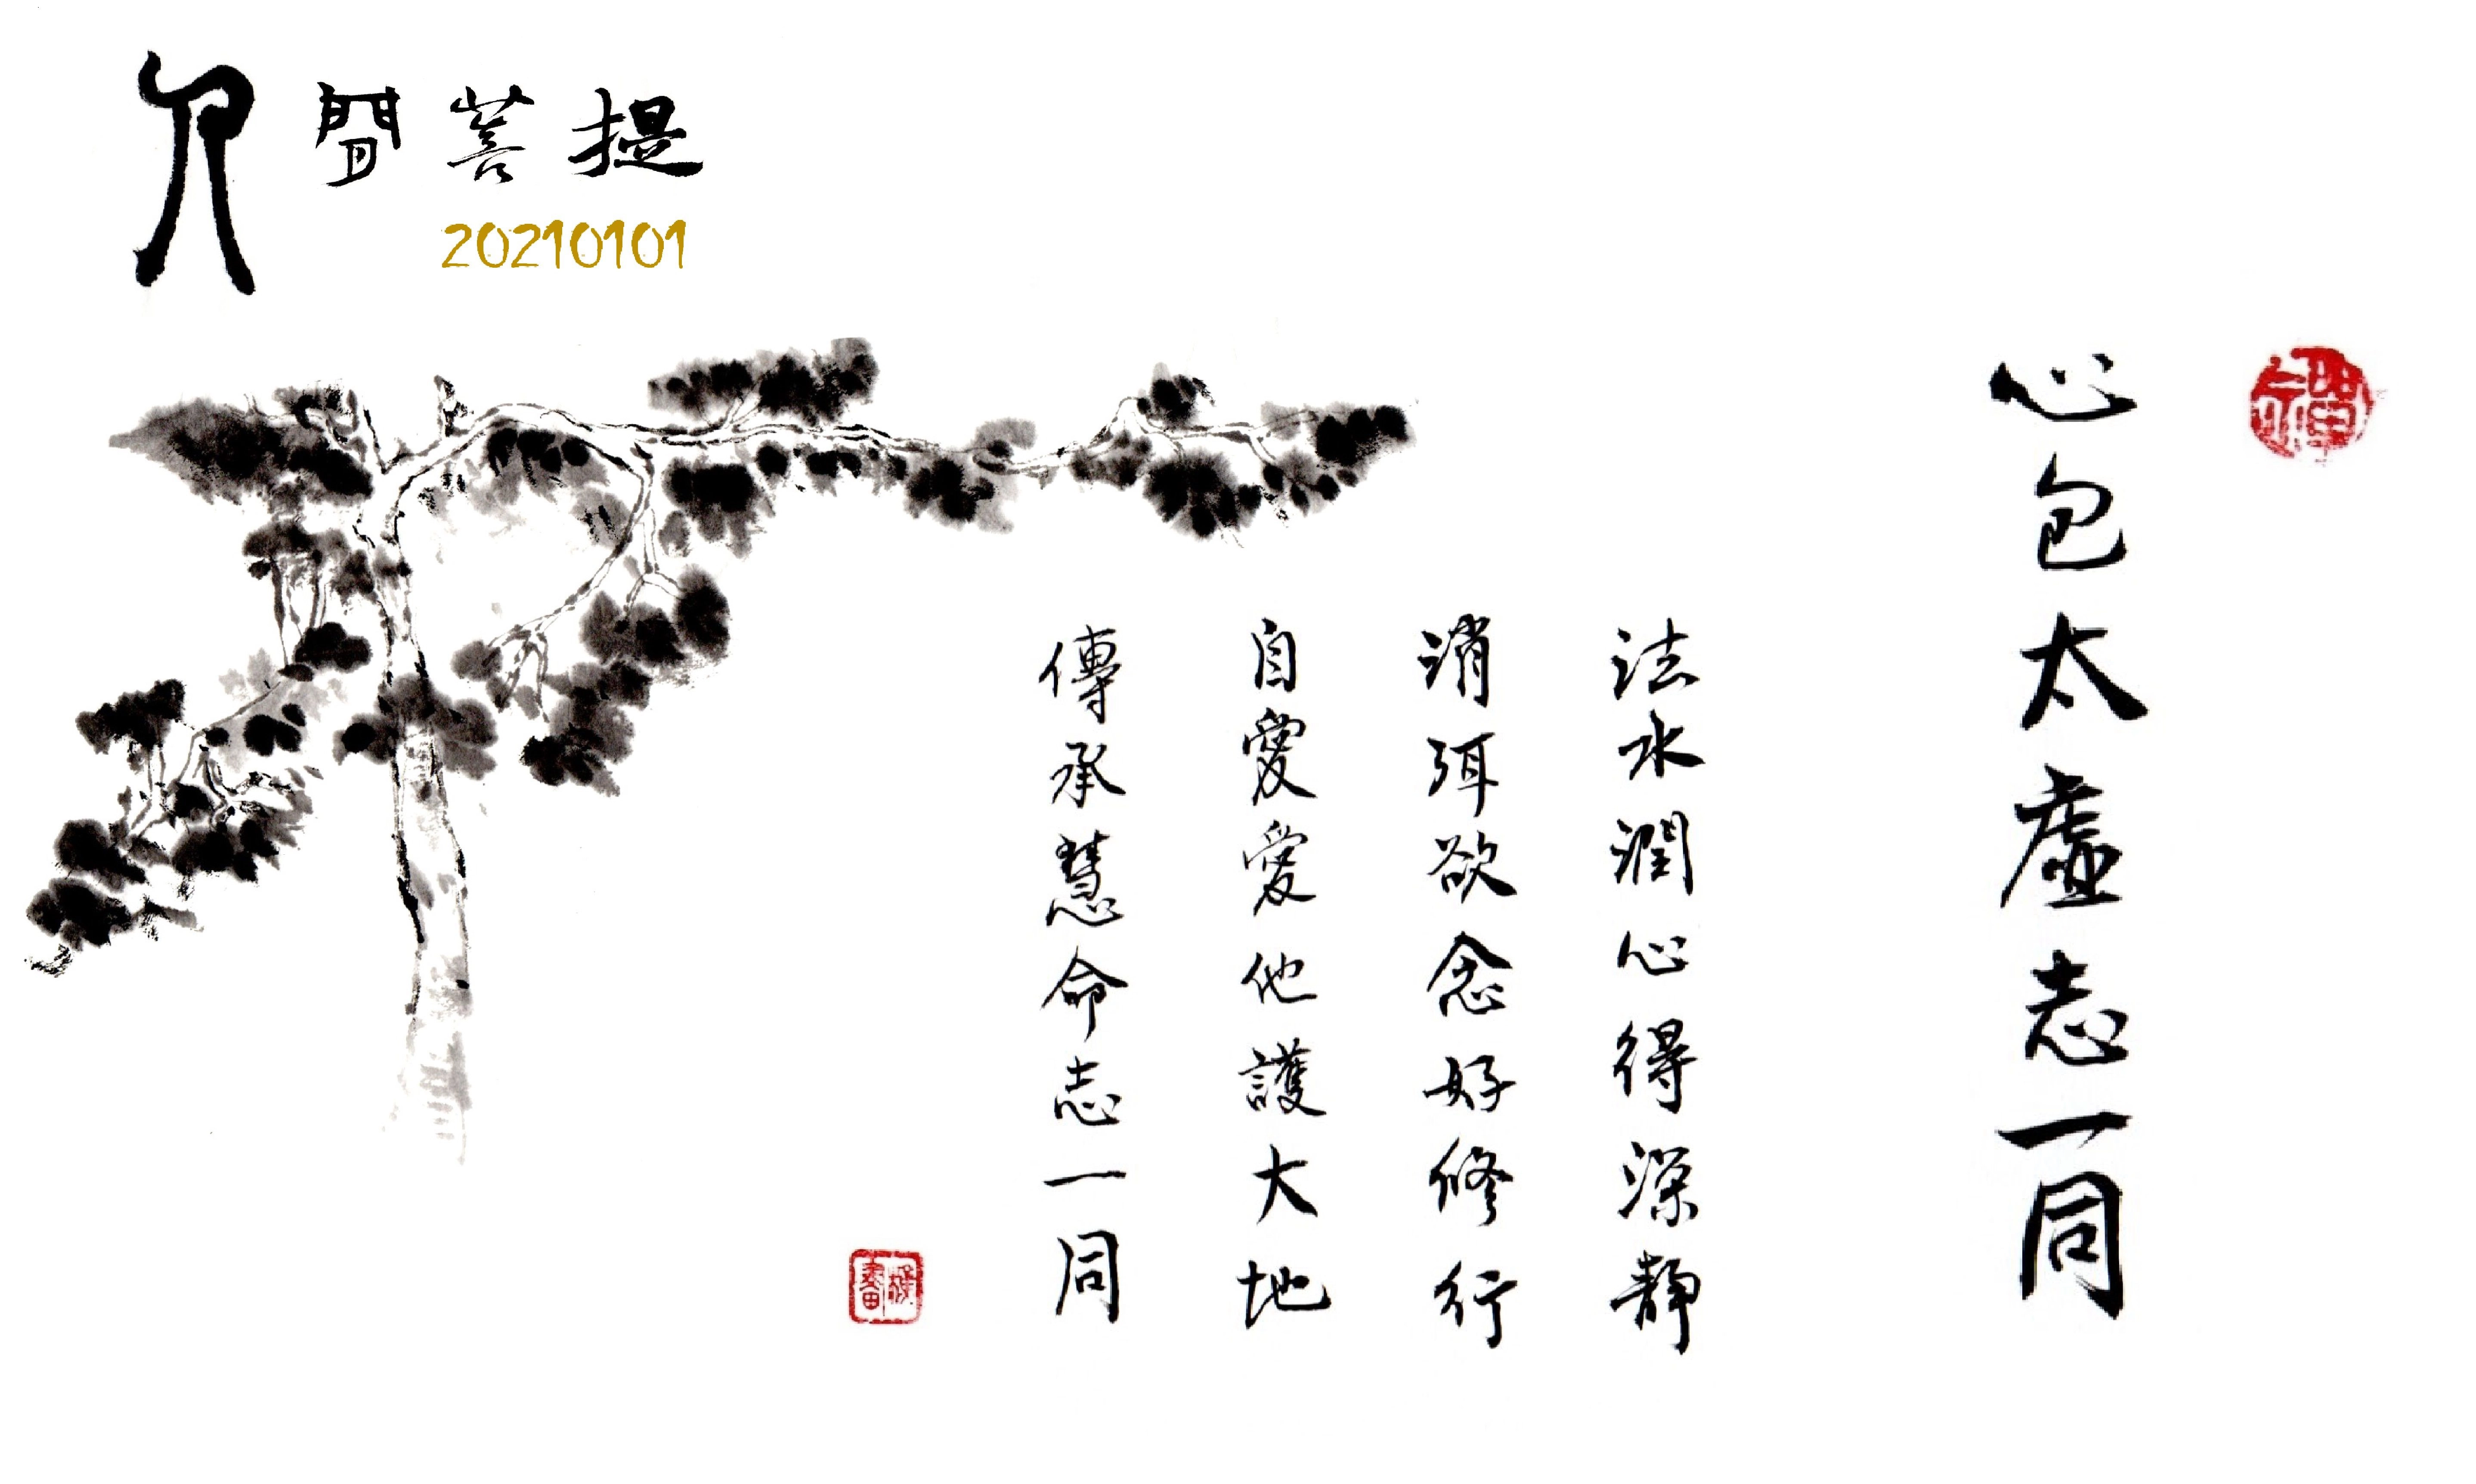 人間菩提
20210101
禪
心包太虛志一同
法水潤心得深靜
消弭欲念好修行
自愛愛他護大地
傳承慧命志一同